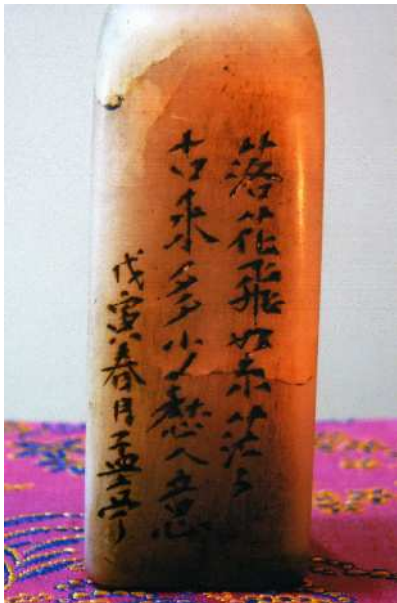 落花飛絮茫々
古來多少愁人意
戊寅春月孟亭